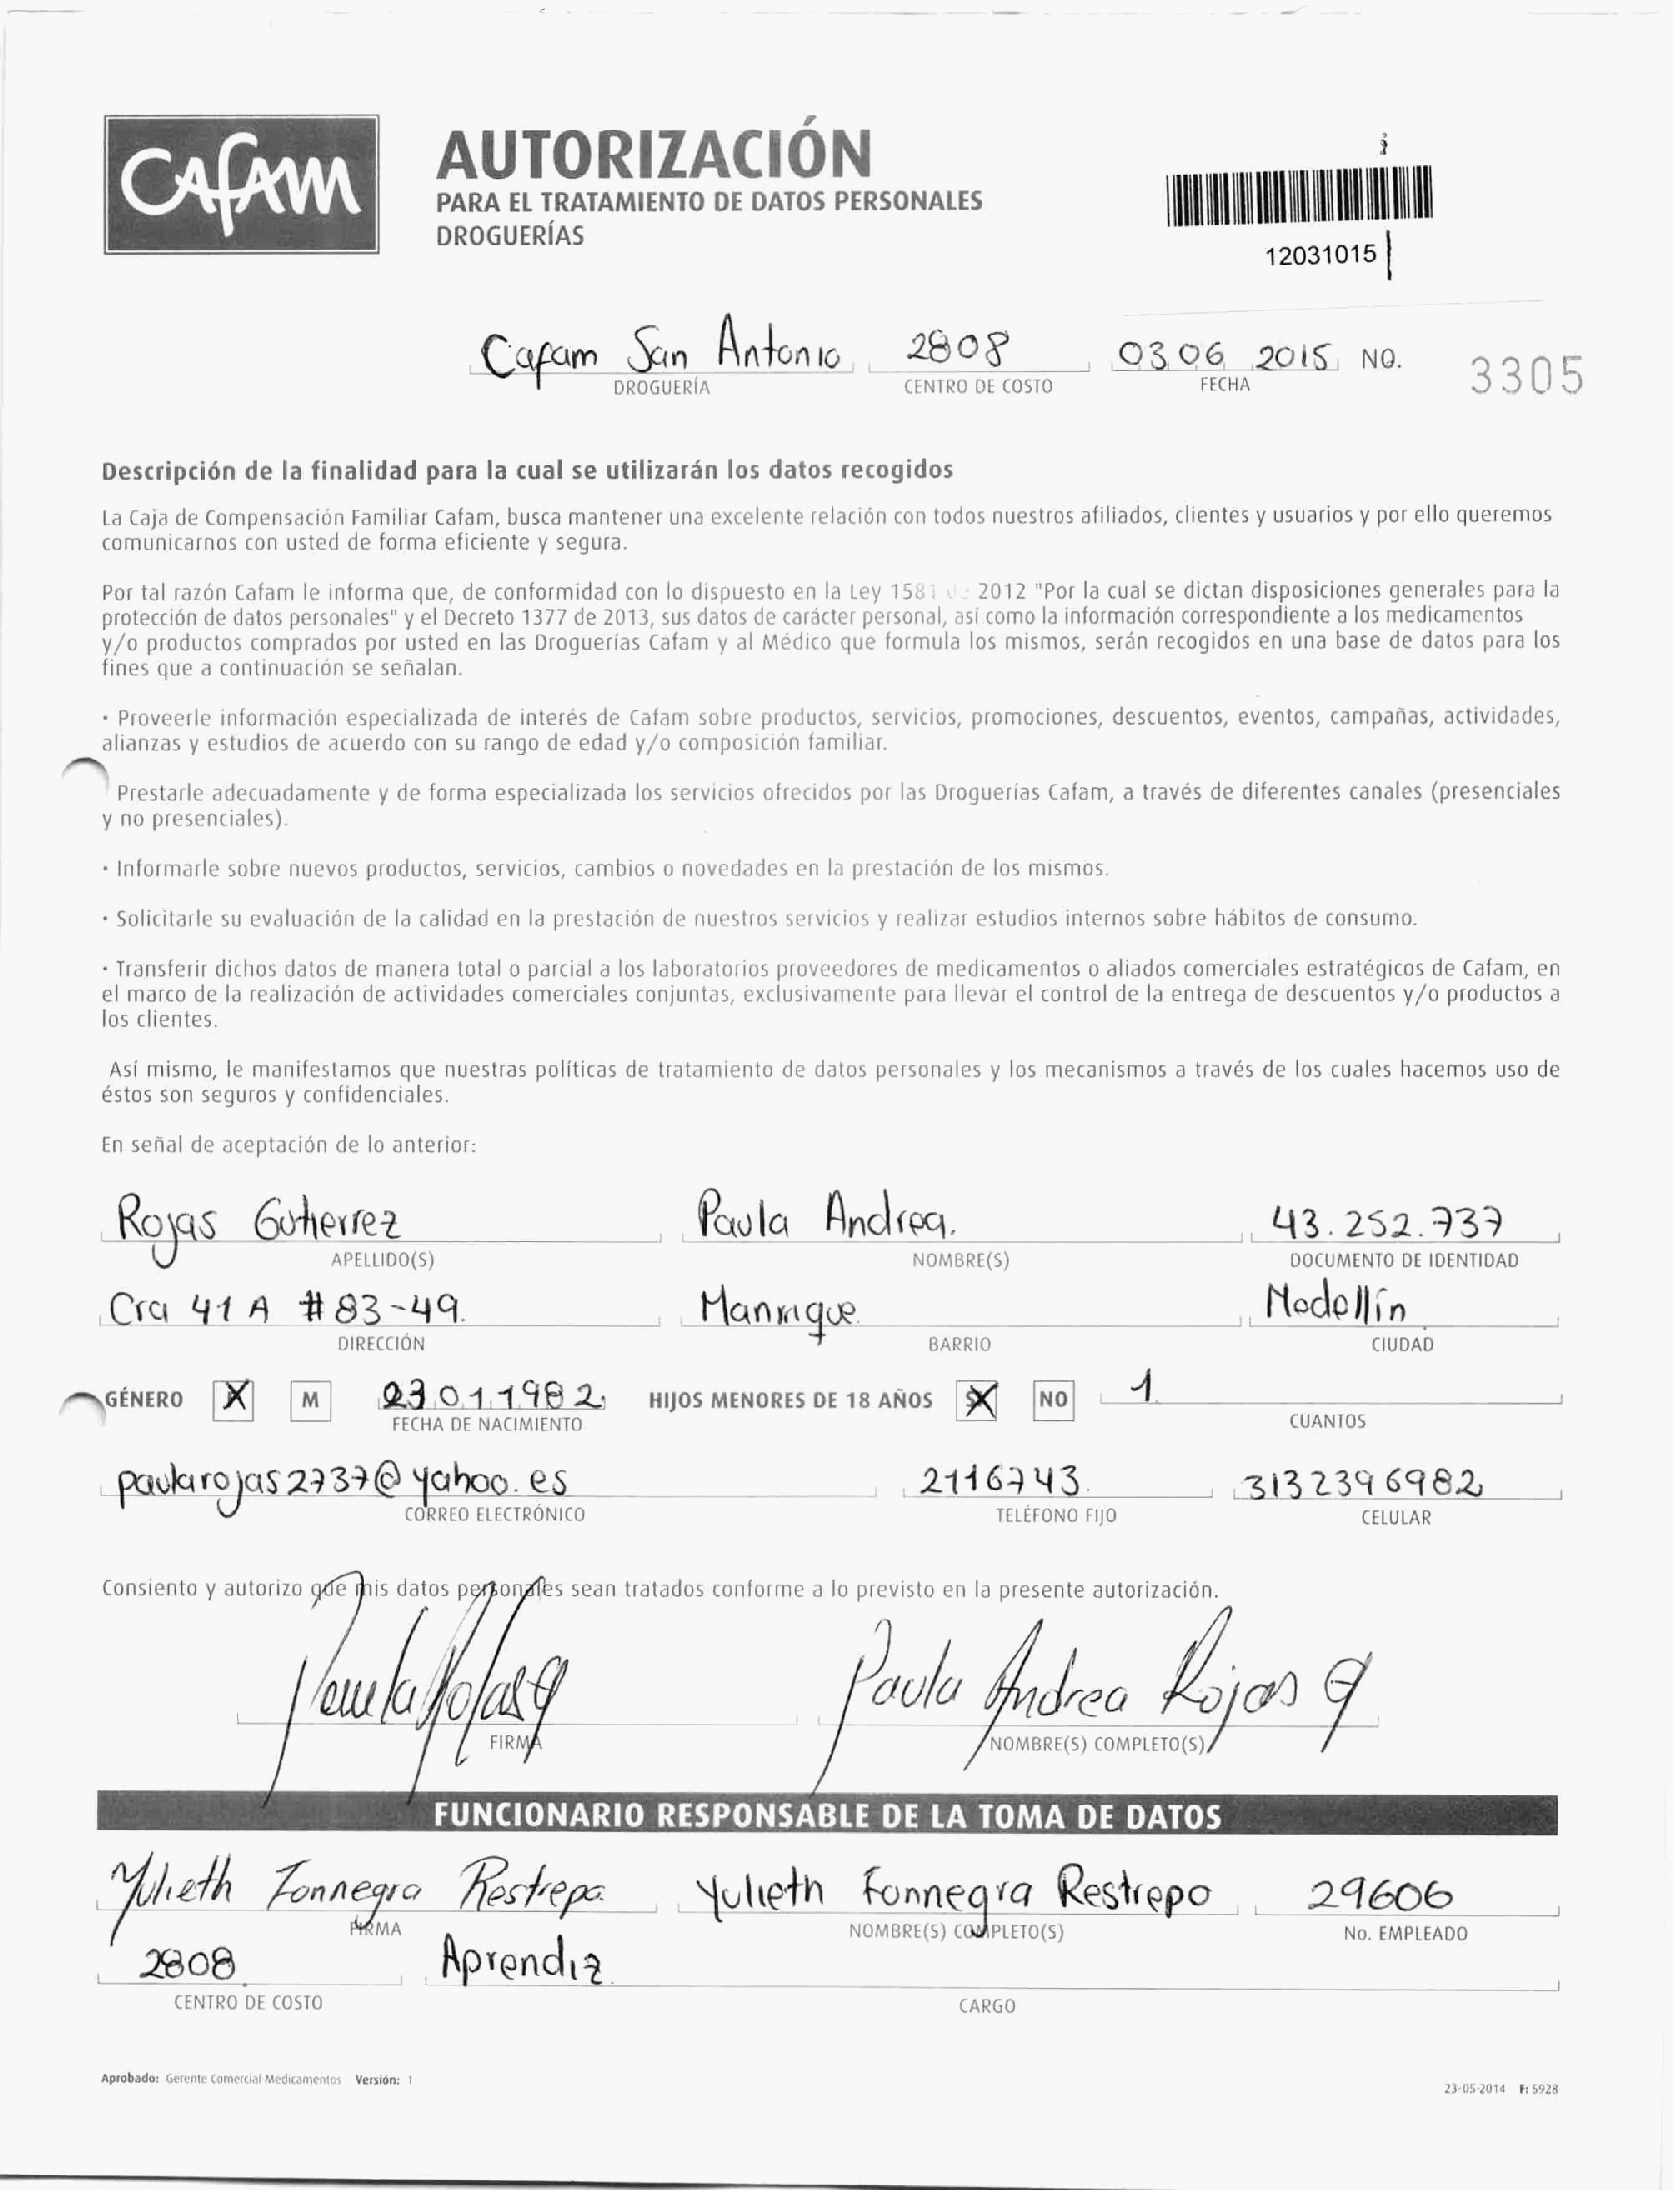 CAfAM
AUTORIZACIÓN
PARA EL TRATAMIENTO DE DATOS PERSONALES
DROGUERÍAS
12031015
Cafam San Antonio 2808 03 06 2015 NO. 3305
DROGUERÍA CENTRO DE COSTO FECHA
Descripción de la finalidad para la cual se utilizarán los datos recogidos
La Caja de Compensación Familiar Cafam, busca mantener una excelente relación con todos nuestros afiliados, clientes y usuarios y por ello queremos
comunicarnos con usted de forma eficiente y segura.
Por tal razón Cafam le informa que, de conformidad con lo dispuesto en la Ley 1581 de 2012 "Por la cual se dictan disposiciones generales para la
protección de datos personales" y el Decreto 1377 de 2013, sus datos de carácter personal, así como la información correspondiente a los medicamentos
y/o productos comprados por usted en las Droguerías Cafam y al Médico que formula los mismos, serán recogidos en una base de datos para los
fines que a continuación se señalan.
· Proveerle información especializada de interés de Cafam sobre productos, servicios, promociones, descuentos, eventos, campañas, actividades,
alianzas y estudios de acuerdo con su rango de edad y/o composición familiar.
Prestarle adecuadamente y de forma especializada los servicios ofrecidos por las Droguerías Cafam, a través de diferentes canales (presenciales
y no presenciales).
· Informarle sobre nuevos productos, servicios, cambios o novedades en la prestación de los mismos.
· Solicitarle su evaluación de la calidad en la prestación de nuestros servicios y realizar estudios internos sobre hábitos de consumo.
· Transferir dichos datos de manera total o parcial a los laboratorios proveedores de medicamentos o aliados comerciales estratégicos de Cafam, en
el marco de la realización de actividades comerciales conjuntas, exclusivamente para llevar el control de la entrega de descuentos y/o productos a
los clientes.
Así mismo, le manifestamos que nuestras políticas de tratamiento de datos personales y los mecanismos a través de los cuales hacemos uso de
éstos son seguros y confidenciales.
En señal de aceptación de lo anterior:
Rojas Gutierrez Paula Andrea. 43.252.737
APELLIDO(S) NOMBRE(S) DOCUMENTO DE IDENTIDAD
Cra 41 A # 83-49. Manrique. Medellín
DIRECCIÓN BARRIO CIUDAD
GÉNERO X M 23 01 1982 HIJOS MENORES DE 18 AÑOS X NO 1
FECHA DE NACIMIENTO CUANTOS
paularojas2737@yahoo.es 2116743 3132396982
CORREO ELECTRÓNICO TELÉFONO FIJO CELULAR
Consiento y autorizo que mis datos personales sean tratados conforme a lo previsto en la presente autorización.
Paula Rojas G Paula Andrea Rojas G
FIRMA NOMBRE(S) COMPLETO(S)
FUNCIONARIO RESPONSABLE DE LA TOMA DE DATOS
Yulieth Fonnegra Restrepo Yulieth Fonnegra Restrepo 29606
FIRMA NOMBRE(S) COMPLETO(S) No. EMPLEADO
2808 Aprendiz
CENTRO DE COSTO CARGO
Aprobado: Gerente Comercial Medicamentos Versión: 1
23-05-2014 F: 5928